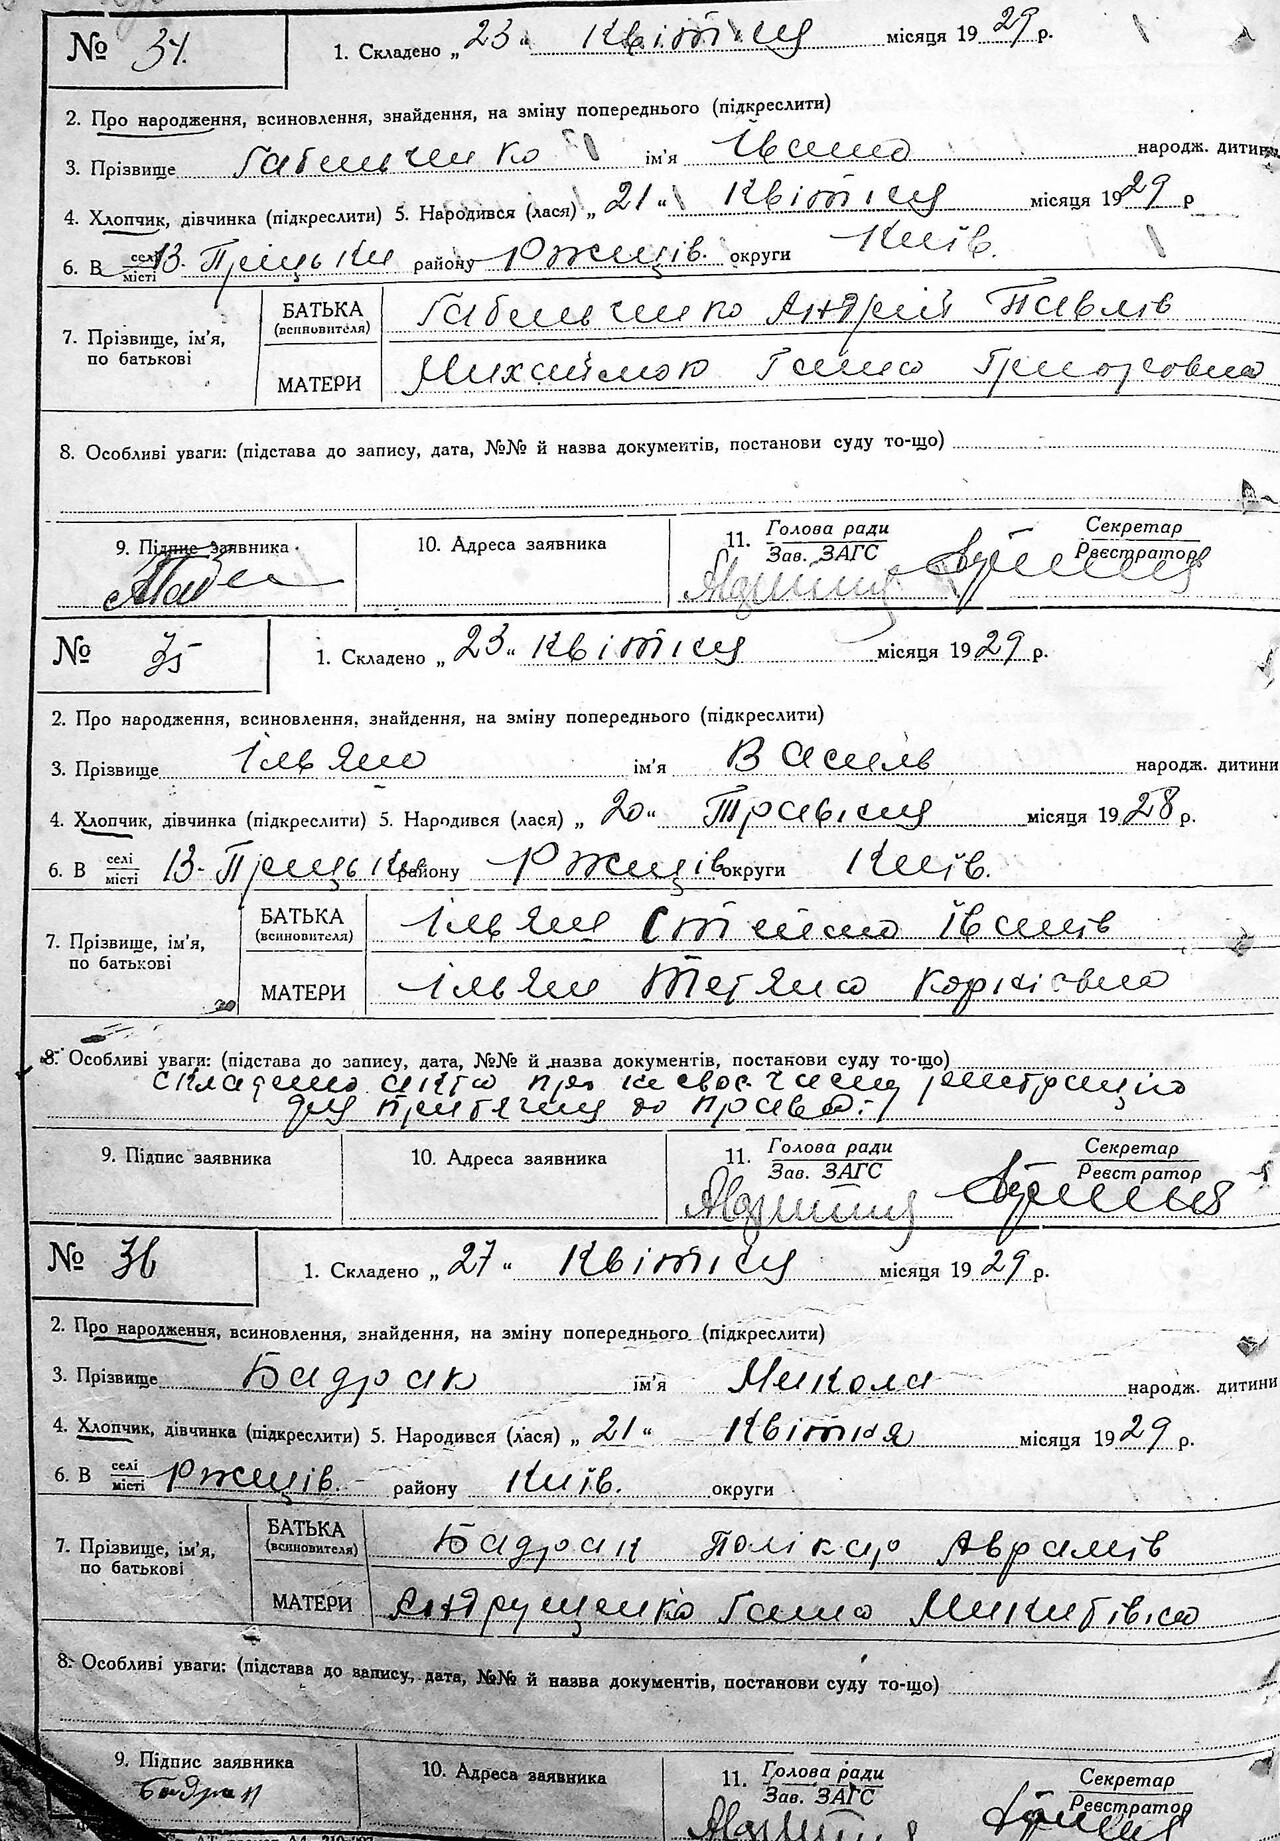 № 34. 1. Складено „23“ Квітня місяця 1929 р.
2. Про народження, всиновлення, знайдення, на зміну попереднього (підкреслити)
3. Прізвище Габельченко ім'я Івана народж. дитини
4. Хлопчик, дівчинка (підкреслити) 5. Народився (лася) „21“ Квітня місяця 1929 р
6. В селі місті В-Прицьки району Ржищів. округи Київ.
7. Прізвище, ім'я, по батькові
БАТЬКА (всиновителя) Габельченко Андрій Павлів
МАТЕРИ Михайлюк Ганна Григоровна
8. Особливі уваги: (підстава до запису, дата, №№ й назва документів, постанови суду то-що)
9. Підпис заявника 10. Адреса заявника 11. Голова ради Зав. ЗАГС Секретар Реєстратор
№ 35 1. Складено „23“ Квітня місяця 1929 р.
2. Про народження, всиновлення, знайдення, на зміну попереднього (підкреслити)
3. Прізвище Ільяш ім'я Василь народж. дитини
4. Хлопчик, дівчинка (підкреслити) 5. Народився (лася) „20“ Травня місяця 1928 р.
6. В селі місті В-Прицьки району Ржищів округи Київ.
7. Прізвище, ім'я, по батькові
БАТЬКА (всиновителя) Ільяш Степан Іванів
МАТЕРИ Ільяш Тетяна Корніївна
8. Особливі уваги: (підстава до запису, дата, №№ й назва документів, постанови суду то-що)
Складено акта про несвоєчасну реєстрацію
для притягня до права.
9. Підпис заявника 10. Адреса заявника 11. Голова ради Зав. ЗАГС Секретар Реєстратор
№ 36 1. Складено „27“ Квітня місяця 1929 р.
2. Про народження, всиновлення, знайдення, на зміну попереднього (підкреслити)
3. Прізвище Бадрак ім'я Микола народж. дитини
4. Хлопчик, дівчинка (підкреслити) 5. Народився (лася) „21“ Квітня місяця 1929 р.
6. В селі місті Ржищів. району Київ. округи
7. Прізвище, ім'я, по батькові
БАТЬКА (всиновителя) Бадрак Полікар Аврамів
МАТЕРИ Андрущенко Ганна Микитівна
8. Особливі уваги: (підстава до запису, дата, №№ й назва документів, постанови суду то-що)
9. Підпис заявника 10. Адреса заявника 11. Голова ради Зав. ЗАГС Секретар Реєстратор
Бадрак